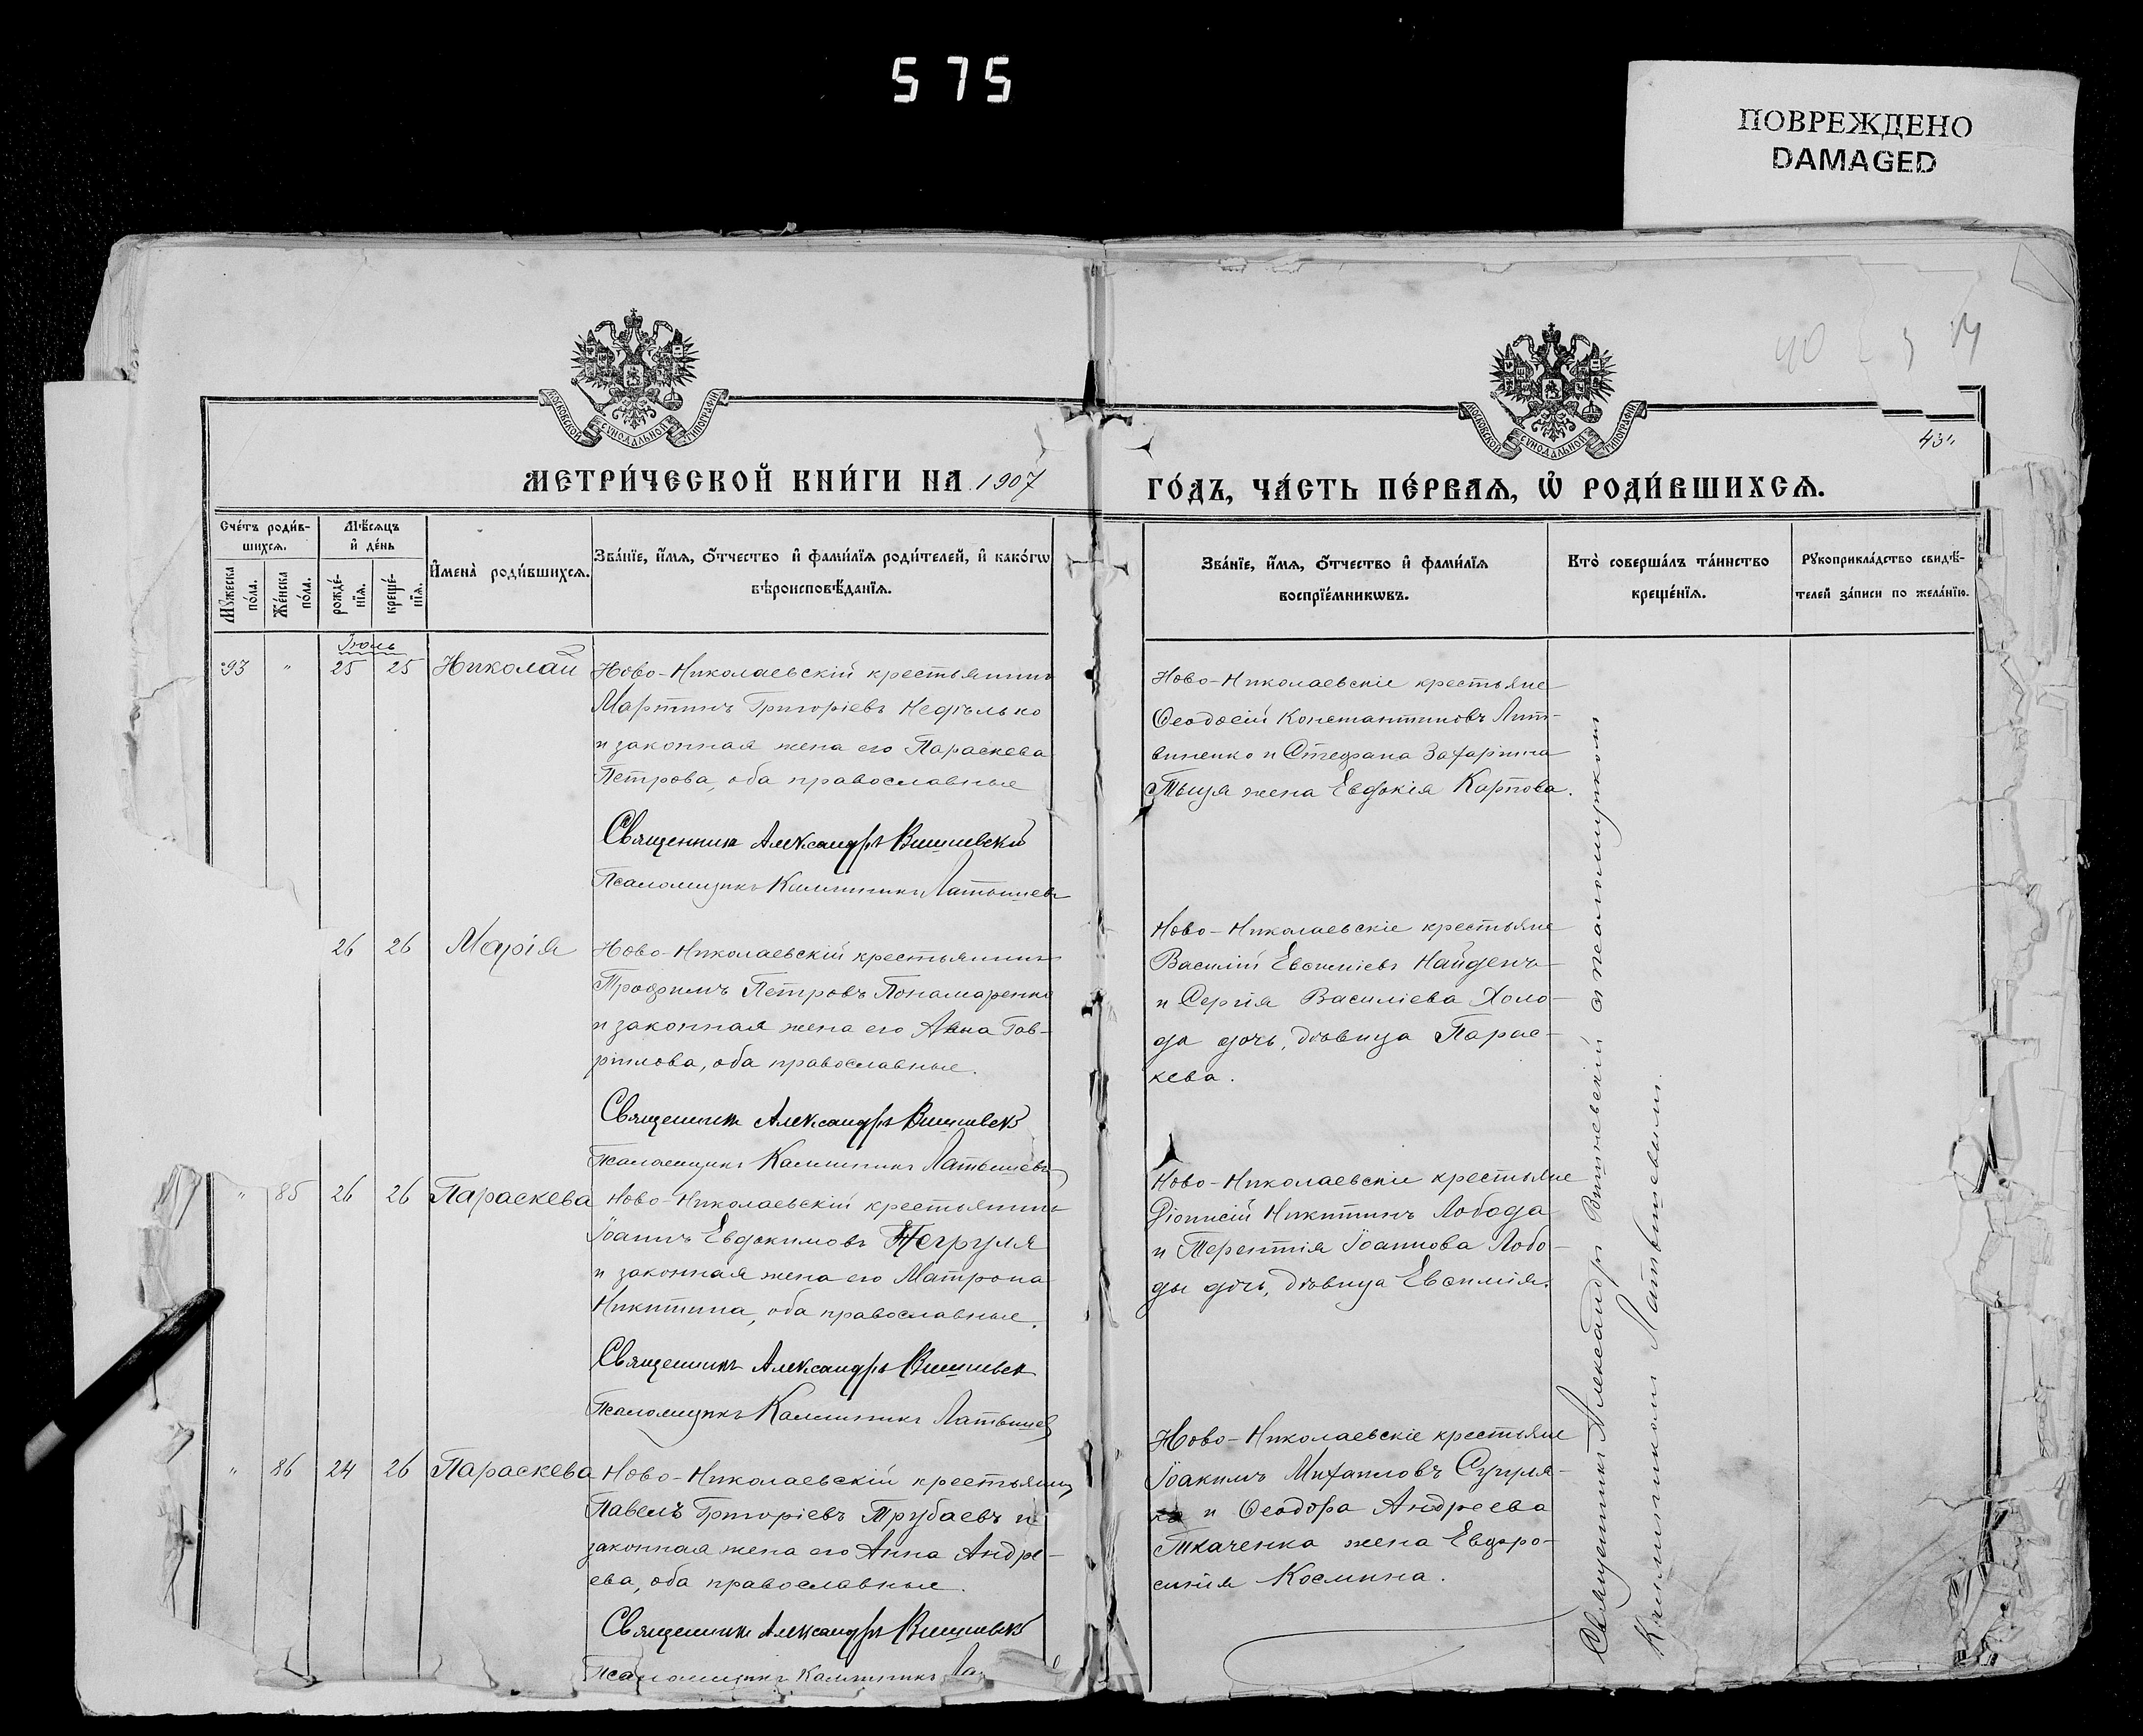 575
ПОВРЕЖДЕНО
DAMAGED
МОСКОВСКОЙ СУНОДАЛЬНОЙ ТИПОГРАФІИ
МОСКОВСКОЙ СУНОДАЛЬНОЙ ТИПОГРАФІИ
40
43
МЕТРИ́ЧЕСКОЙ КНИ́ГИ НА 1907
ГО́ДЪ, ЧА́СТЬ ПЕ́РВАѦ, Ѡ҆ РОДИ́ВШИХСѦ.
Сче́тъ роди́в-
шихсѧ.
Мѣ́сѧцъ
и҆ де́нь
Мꙋ́жеска
по́ла.
Же́нска
по́ла.
рожде́-
нїѧ.
креще́-
нїѧ.
И҆мена̀ роди́вшихсѧ.
Зва́нїе, и҆́мѧ, ѻ҆́тчество и҆ фами́лїѧ роди́телей, и҆ како́гѡ
вѣроисповѣ́данїѧ.
Зва́нїе, и҆́мѧ, ѻ҆́тчество и҆ фами́лїѧ
воспрїе́мникѡвъ.
Кто̀ соверша́лъ та́инство
креще́нїѧ.
Рꙋкоприкла́дство свидѣ́-
телей за́писи по жела́нїю.
Іюль
93 " 25 25 Николай
Ново-Николаевскій крестьянинъ
Мартинъ Григоріевъ
и законная жена его Параскева
Петрова, оба православные
Священникъ Александръ Вишневскій
Псаломщикъ Каллиникъ Латышевъ
Ново-Николаевскіе крестьяне
Ѳеодосій Константиновъ Лит-
виненко и Стефана Захарина
жена Евдокія Карпова.
26 26 Марія
Ново-Николаевскій крестьянинъ
Трофимъ Петровъ Пономаренко
и законная жена его Анна Гав-
рилова, оба православные.
Священникъ Александръ Вишневск
Псаломщикъ Каллиникъ Латышевъ
Ново-Николаевскіе крестьяне
Василій Евсигніевъ Найденъ
и Сергія Василіева Холо-
да дочь, дѣвица Парас-
кева.
" 85 26 26 Параскева
Ново-Николаевскій крестьянинъ
Іоаннъ Евдокимовъ Негруля
и законная жена его Матрона
Никитина, оба православные.
Священникъ Александръ Вишневск
Псаломщикъ Каллиникъ Латышев
Ново-Николаевскіе крестьяне
Діонисій Никитинъ Лобода
и Терентія Іоаннова Лобо-
ды дочь, дѣвица Евфимія.
" 86 24 26 Параскева
Ново-Николаевскій крестьянинъ
Павелъ Григоріевъ Трубаевъ и
законная жена его Анна Андре-
ева, оба православные.
Священникъ Александръ Вишневск
Псаломщикъ Каллиникъ Ла
Ново-Николаевскіе крестьяне
Іоакимъ Михаиловъ
и Ѳеодора Андреева
Ткаченка жена Евфро-
синія Космина.
Священникъ Александръ Вишневскій съ псаломщикомъ
Каллиникомъ Латышевымъ.